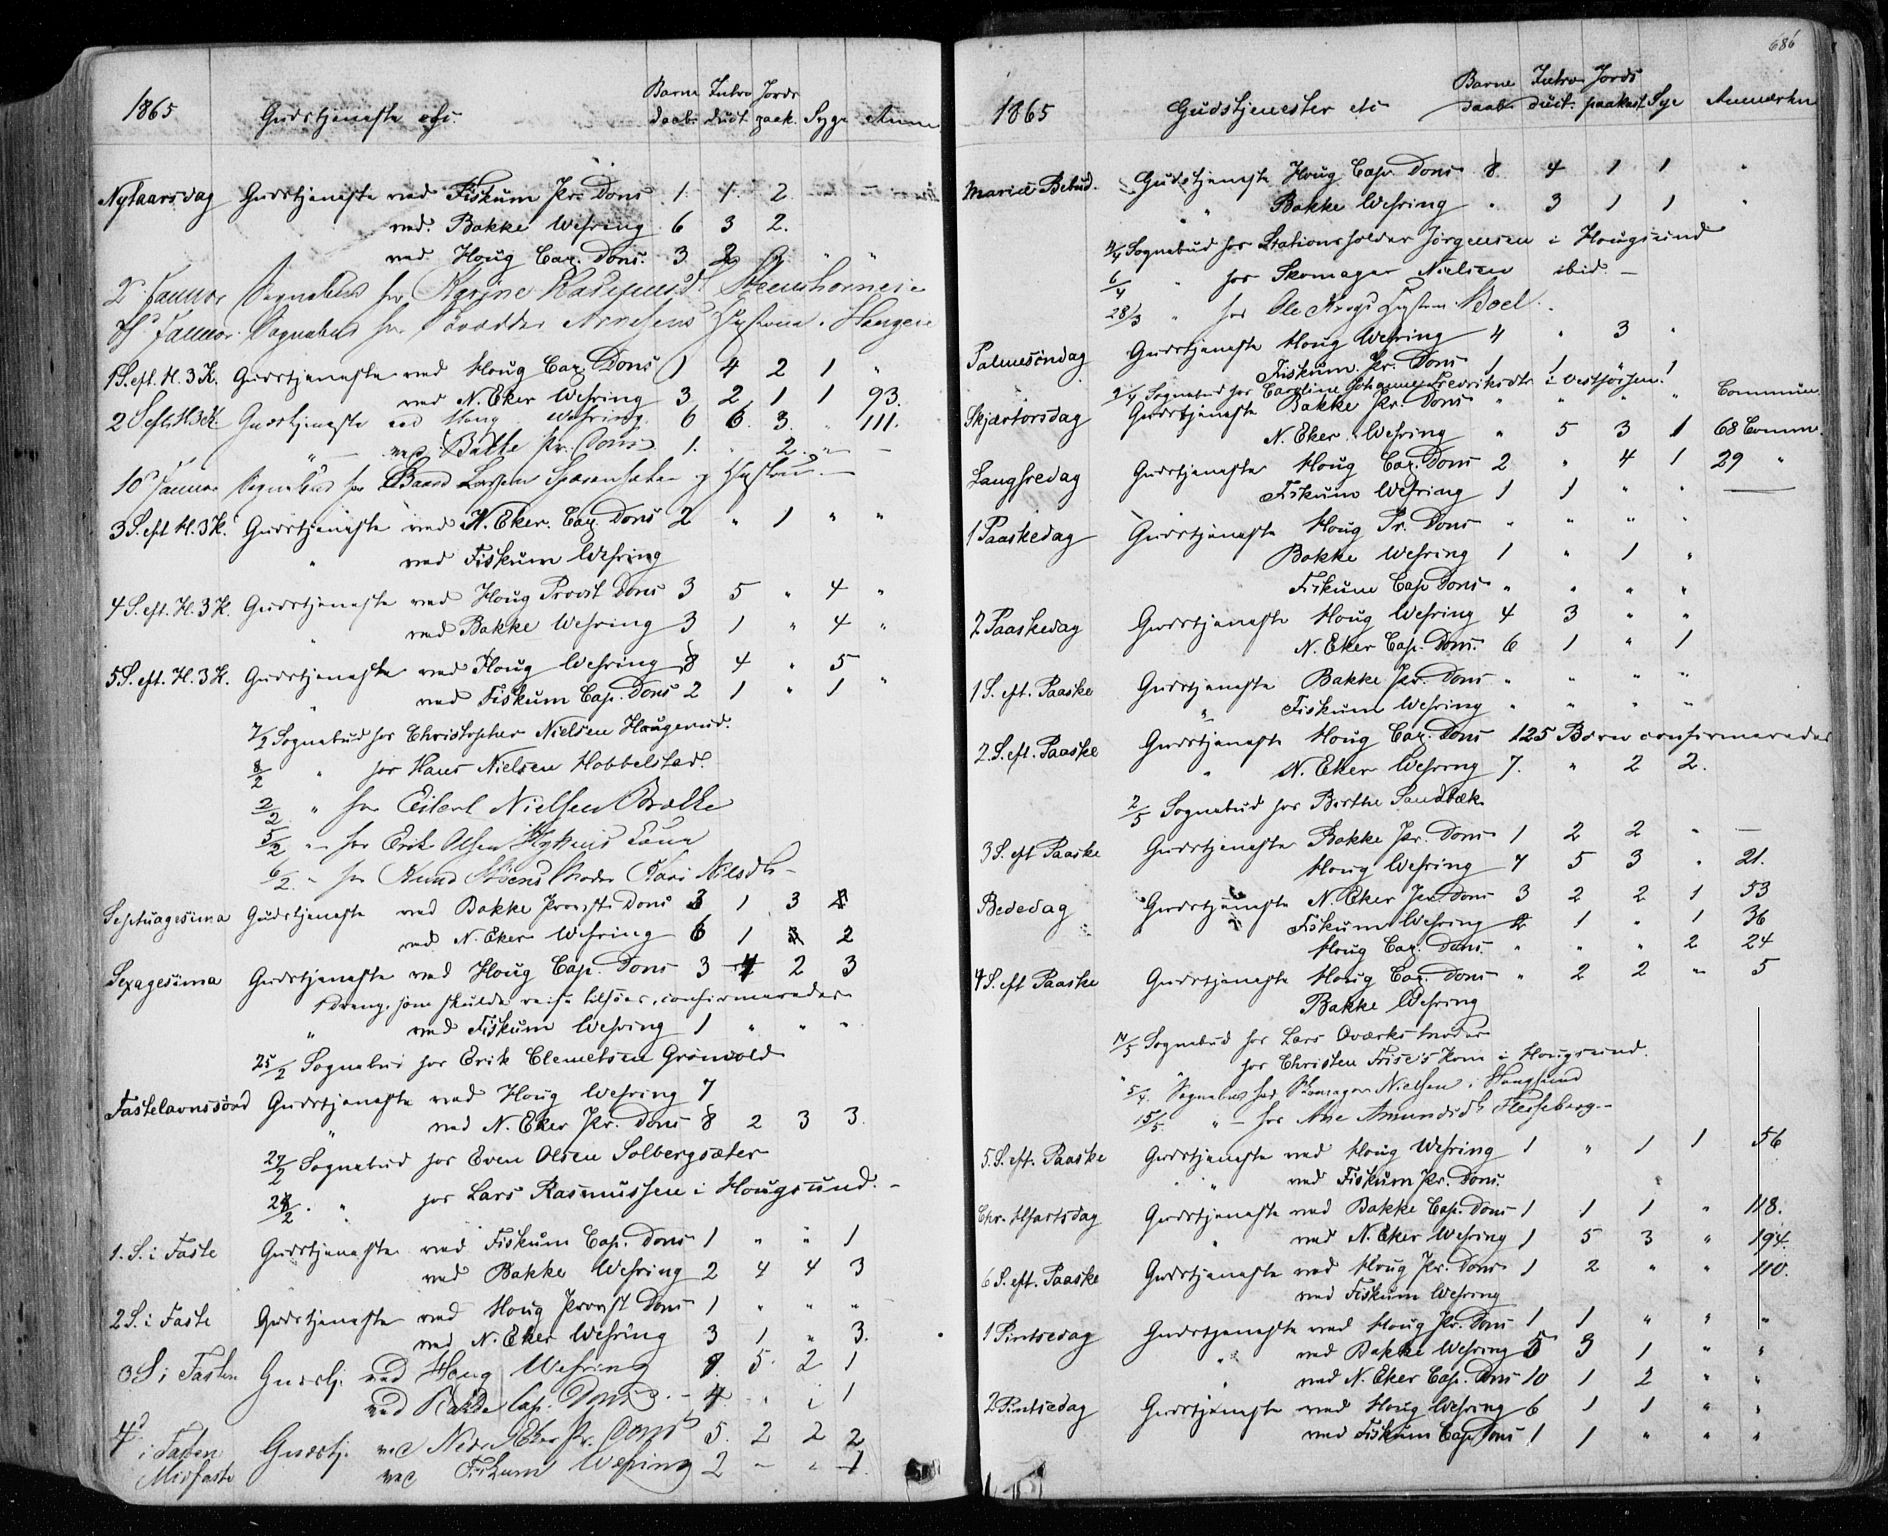 1865 Gudstjeneste ofs. Barne daab. Intro duct. Jords paak. Syge Anm
Nytaarsdag Gudstjeneste ved Fiskum Pr. Dons 1. 1. 2. - -
ved Bakke Wefring 6 3 2.
ved Houg Cap. Dons. 3 2 " "
2 Januar Sognebud for Karine
Januar Sognebud for Arnesens Hustrue
1 S. eft. H. 3 K. Gudstjeneste ved Houg Cap. Dons 1 4 2 1 "
ved N. Eker Wefring 3 2 1 1 93.
2 S. eft. H 3 K Gudstjeneste ved Houg Wefring 6 6. 3. " 111.
" ved Bakke Pr. Dons. 1. " 2. " -
10 Januar Sognebud for Baard Larsen og Hustrue. -
3 S. eft H. 3 K. Gudstjeneste ved N. Eker. Cap. Dons 2 " 1 " "
" ved Fiskum Wefring
4 S. eft. H. 3 K. Gudstjeneste ved Houg Provst Dons 3 5 " 4 "
" ved Bakke Wefring 3 1 " 4 "
5 S. eft. H. 3 K. Gudstjeneste ved Houg Wefring 8 4 " 5
" ved Fiskum Cap. Dons 2 1 " 1 "
7/2 Sognebud for Christopher Nielsen Haugerud.
8/2 " for Hans Nielsen Hobbelstad.
2/2 " for Eilert Nielsen Bralke
5/2 " - for Erik Olsen
6/2 " - for Knud Moder Kari Nilsdtr -
Septuagesima Gudstjeneste ved Bakke Provst Dons 3 1 3
ved N. Eker Wefring 6 1 2
Sexagesima Gudstjeneste ved Houg Cap. Dons 3 4 2 3
1 Dreng, som skulde reise tilsøes, confirmeredes
" ved Fiskum Wefring 1 " " "
25/2 Sognebud for Erik Clemetsen Grønvold
Fastelavnssønd Gudstjeneste ved Houg Wefring 7
" ved N. Eker Pr. Dons 8 2 3 3.
27/2 Sognebud for Even Olsen Solbergsæter
28/2. " for Lars Rasmussen i Hougsund. -
1. S. i Faste Gudstjeneste ved Fiskum Cap. Dons 1 " " 1
ved Bakke Wefring 2 4 4 3
2 S. i Faste Gudstjeneste ved Houg Provst Dons 1 " " "
ved N. Eker Wefring 3 1 " 3.
3 S i Fasten Gudstj. ved Houg Wefring 5. 2 1
ved Bakke Cap. Dons. - 4. " 1
4d i Fasten Gudstj. ved Nedre Eker Pr. Dons 5. 2 2 2
Midfaste ved Fiskum Wefring 2 - " 1.
686
1865 Gudstjenester etc Barne daab. Intro duct. Jords paakast. Sye Anmærkn
Mariæ Bebud. Gudstjeneste Houg Cap. Dons 8 4 1 1 "
" " Bakke Wefring " 3 1 1 "
4/4 Sognebud for Stationsholder Jørgensen i Hougsund
6/4 " for Skomager Nielsen ibid -
28/3 " for Ole Krogs Hustru
Palmesøndag Gudstjeneste Houg Wefring 4 " 3 "
Fiskum. Pr. Dons 1 1 " 1
2/4 Sognebud for Caroline Johanne Fredriksdtr i Vestfossen.
Skjærtorsdag Gudstjeneste Bakke Pr. Dons " " " " Commun.
N. Eker. Wefring " 5 3 1 68 Comm.
Langfredag Gudstjeneste Houg Cap. Dons 2 " 4 1 29 "
Fiskum Wefring 1 1 " " -
1 Paaskedag Gudstjeneste Houg Pr. Dons " " " "
Bakke Wefring 1 " 1 "
Fiskum Cap Dons " " " "
2 Paaskedag Gudstjeneste Houg Wefring 4 3 " "
N. Eker Cap. Dons. 6 1 " 1
1 S. eft. Paaske Gudstjeneste Bakke Pr. Dons " " " "
" Fiskum Wefring " " " "
2. S. eft. Paaske Gudstjeneste Houg Cap. Dons 125 Børn confirmeredes
" N. Eker Wefring 7. " 2 2.
2/5 Sognebud for Berthe Sandbæk
3 S. eft Paaske Gudstjeneste Bakke Pr. Dons 1 2 2 " -
Houg Wefring 4 5 3 " 21.
Bededag Gudstjeneste N. Eker Pr. Dons 3 2 2 1 53
Fiskum Wefring 1 " 1 36
Houg Cap. Dons. " " " 2 24
4 S. eft Paaske Gudstjeneste Houg Cap. Dons " 2 2 " 5
Bakke Wefring
14/5 Sognebud for Lars Oværks Moder
" for Christen Frise's Kone i Hougsund.
5/4. Sognebud for Skomager Nielsen i Hougsund
15/5 " - for Ane Amundsdtr Flesseberg. -
5. S. eft. Paaske Gudstjeneste ved Houg Wefring 1 " 1 1 56
" ved Fiskum Pr. Dons.
Chr. Hfartsdag Gudstjeneste ved Bakke Cap. Dons 1 1 1 " 118.
" ved N. Eker Wefring 1 5 3 " 194.
6 S. eft. Paaske Gudstjeneste ved Houg Pr. Dons 1 2 " " 110.
ved Fiskum Wefring
1 Pintsedag Gudstjeneste ved Houg Pr. Dons 1 1 " " "
" ved Bakke Wefring 5 3 1 " "
ved N. Eker Cap. Dons 10 1 2 " "
2 Pintsedag Gudstjeneste ved Houg Wefring 6 1 1 " "
ved Fiskum Cap Dons 1 1 " " "